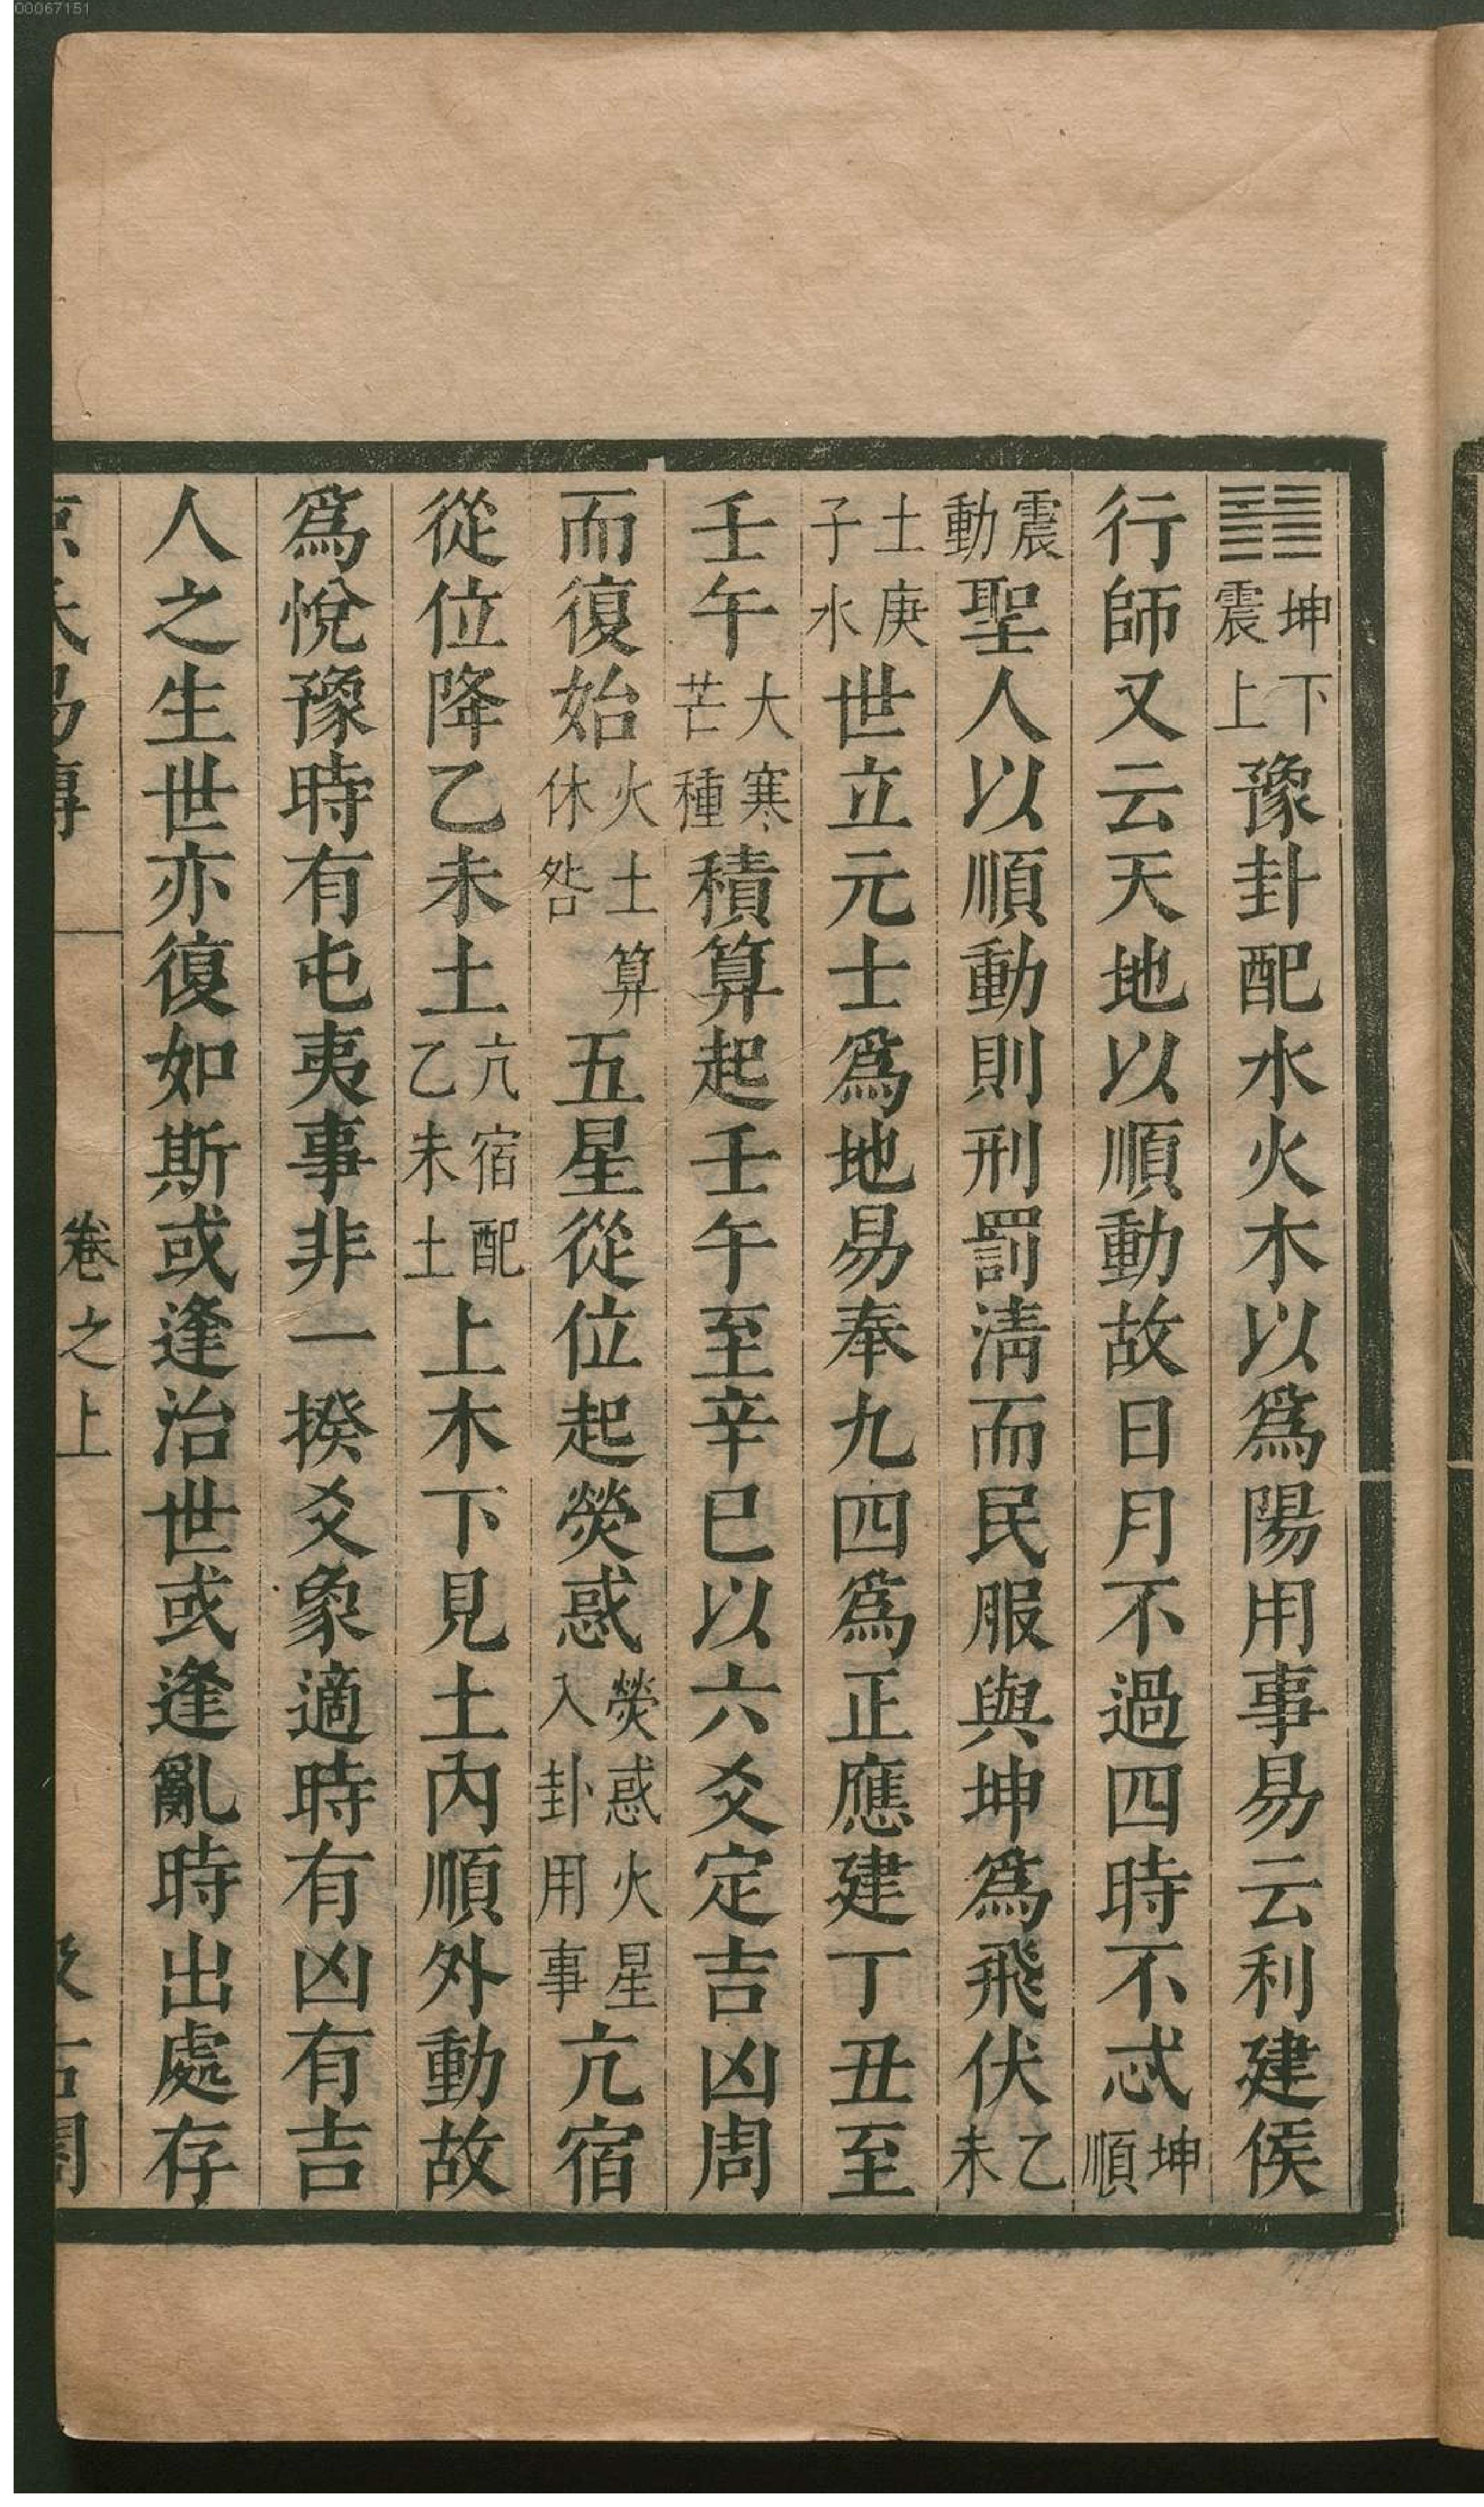 00067151
坤下震上豫卦配水火木以爲陽用事易云利建侯
行師又云天地以順動故日月不過四時不忒坤順
震動聖人以順動則刑罰淸而民服與坤爲飛伏乙未
土庚子水世立元士爲地易奉九四爲正應建丁丑至
壬午大寒芒種積算起壬午至辛巳以六爻定吉凶周
而復始火土算休咎五星從位起熒惑熒惑火星入卦用事亢宿
從位降乙未土亢宿配乙未土上木下見土內順外動故
爲悅豫時有屯夷事非一揆爻象適時有凶有吉
人之生世亦復如斯或逢治世或逢亂時出處存
卷之上